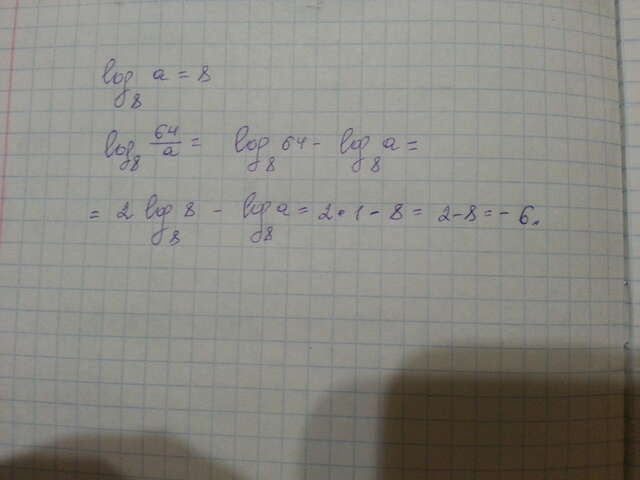 log₈ a = 8
log₈ 64/a = log₈ 64 - log₈ a =
= 2 log₈ 8 - log₈ a = 2 · 1 - 8 = 2 - 8 = - 6.